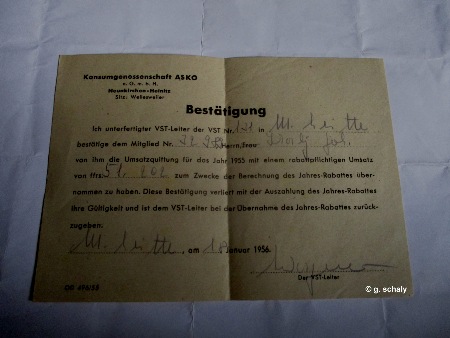 Konsumgenossenschaft ASKO
e. G. m. b. H.
Neunkirchen-Heinitz
Sitz: Wellesweiler
Bestätigung
Ich unterfertigter VST-Leiter der VST Nr. in
bestätige dem Mitglied Nr. Herrn, Frau
von ihm die Umsatzquittung für das Jahr 1955 mit einem rabattpflichtigen Umsatz
von ffrs. 51.202 zum Zwecke der Berechnung des Jahres-Rabattes über-
nommen zu haben. Diese Bestätigung verliert mit der Auszahlung des Jahres-Rabattes
ihre Gültigkeit und ist dem VST-Leiter bei der Übernahme des Jahres-Rabattes zurück-
zugeben.
, am Januar 1956.
Der VST-Leiter
© g. schaly